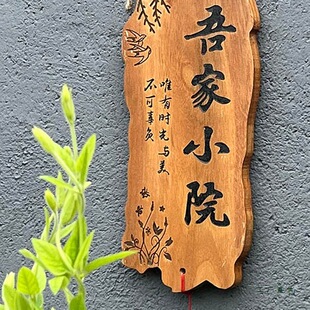 吾家小院
唯有时光与美
不可辜负